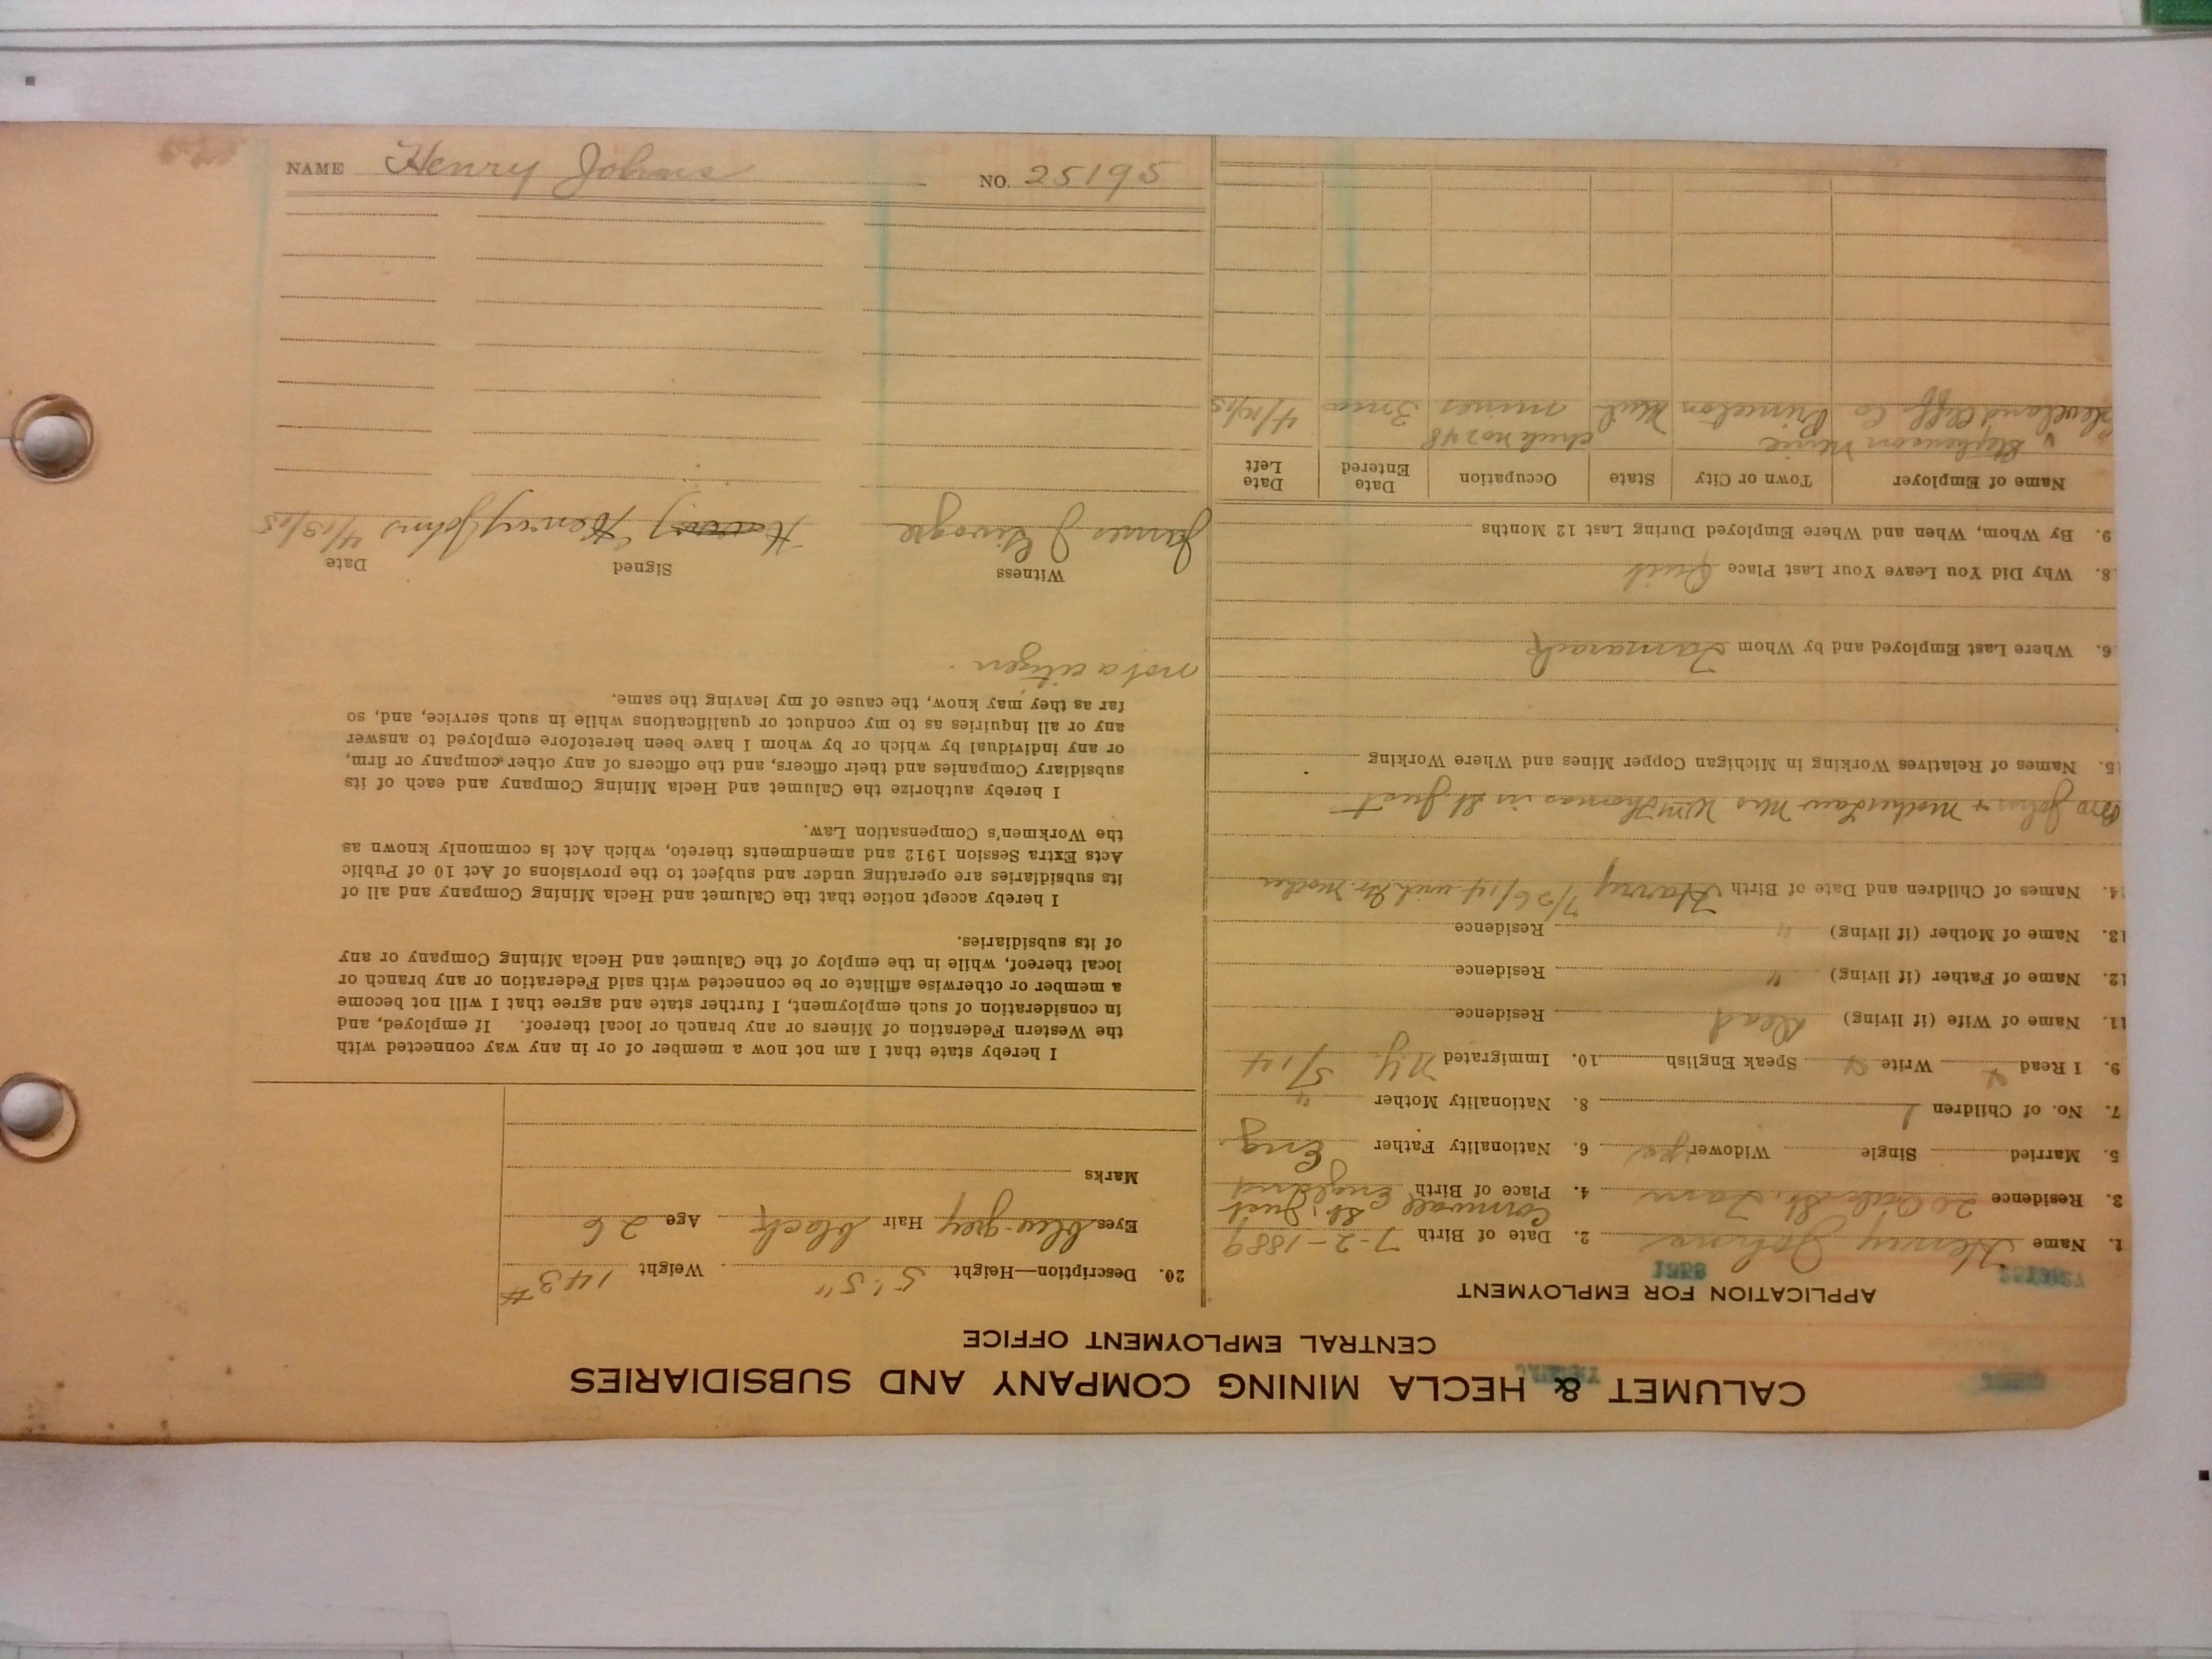 NAME Henry Johns NO. 25195
CALUMET & HECLA MINING COMPANY AND SUBSIDIARIES
CENTRAL EMPLOYMENT OFFICE
APPLICATION FOR EMPLOYMENT
1. Name Henry Johns 2. Date of Birth 7-2-1889
Cornwall St. Just
3. Residence 20 Oak St. 4. Place of Birth England
5. Married Single Widower yes 6. Nationality Father Eng
7. No. of Children 1 8. Nationality Mother "
9. I Read Write Speak English 10. Immigrated N.Y. 5/14
11. Name of Wife (if living) Dead Residence
12. Name of Father (if living) " Residence
13. Name of Mother (if living) " Residence
14. Names of Children and Date of Birth Harry 7/26/14 with Gr. Mother
Bro John + Mother Law Mrs Wm Thomas in St. Just
15. Names of Relatives Working in Michigan Copper Mines and Where Working
6. Where Last Employed and by Whom Tamarack
8. Why Did You Leave Your Last Place Quit
9. By Whom, When and Where Employed During Last 12 Months
Name of Employer Town or City State Occupation Date Entered Date Left
Stephenson Mine check no 248
Cleveland Cliff Co Princeton Mich miner 3 mo 4/10/15
20. Description—Height 5' 5" Weight 143#
Eyes blue-grey Hair black Age 26
Marks
I hereby state that I am not now a member of or in any way connected with
the Western Federation of Miners or any branch or local thereof. If employed, and
in consideration of such employment, I further state and agree that I will not become
a member or otherwise affiliate or be connected with said Federation or any branch or
local thereof, while in the employ of the Calumet and Hecla Mining Company or any
of its subsidiaries.
I hereby accept notice that the Calumet and Hecla Mining Company and all of
its subsidiaries are operating under and subject to the provisions of Act 10 of Public
Acts Extra Session 1912 and amendments thereto, which Act is commonly known as
the Workmen's Compensation Law.
I hereby authorize the Calumet and Hecla Mining Company and each of its
subsidiary Companies and their officers, and the officers of any other company or firm,
or any individual by which or by whom I have been heretofore employed to answer
any or all inquiries as to my conduct or qualifications while in such service, and, so
far as they may know, the cause of my leaving the same.
not a citizen.
Witness Signed Date
James J Henry Johns 4/13/15